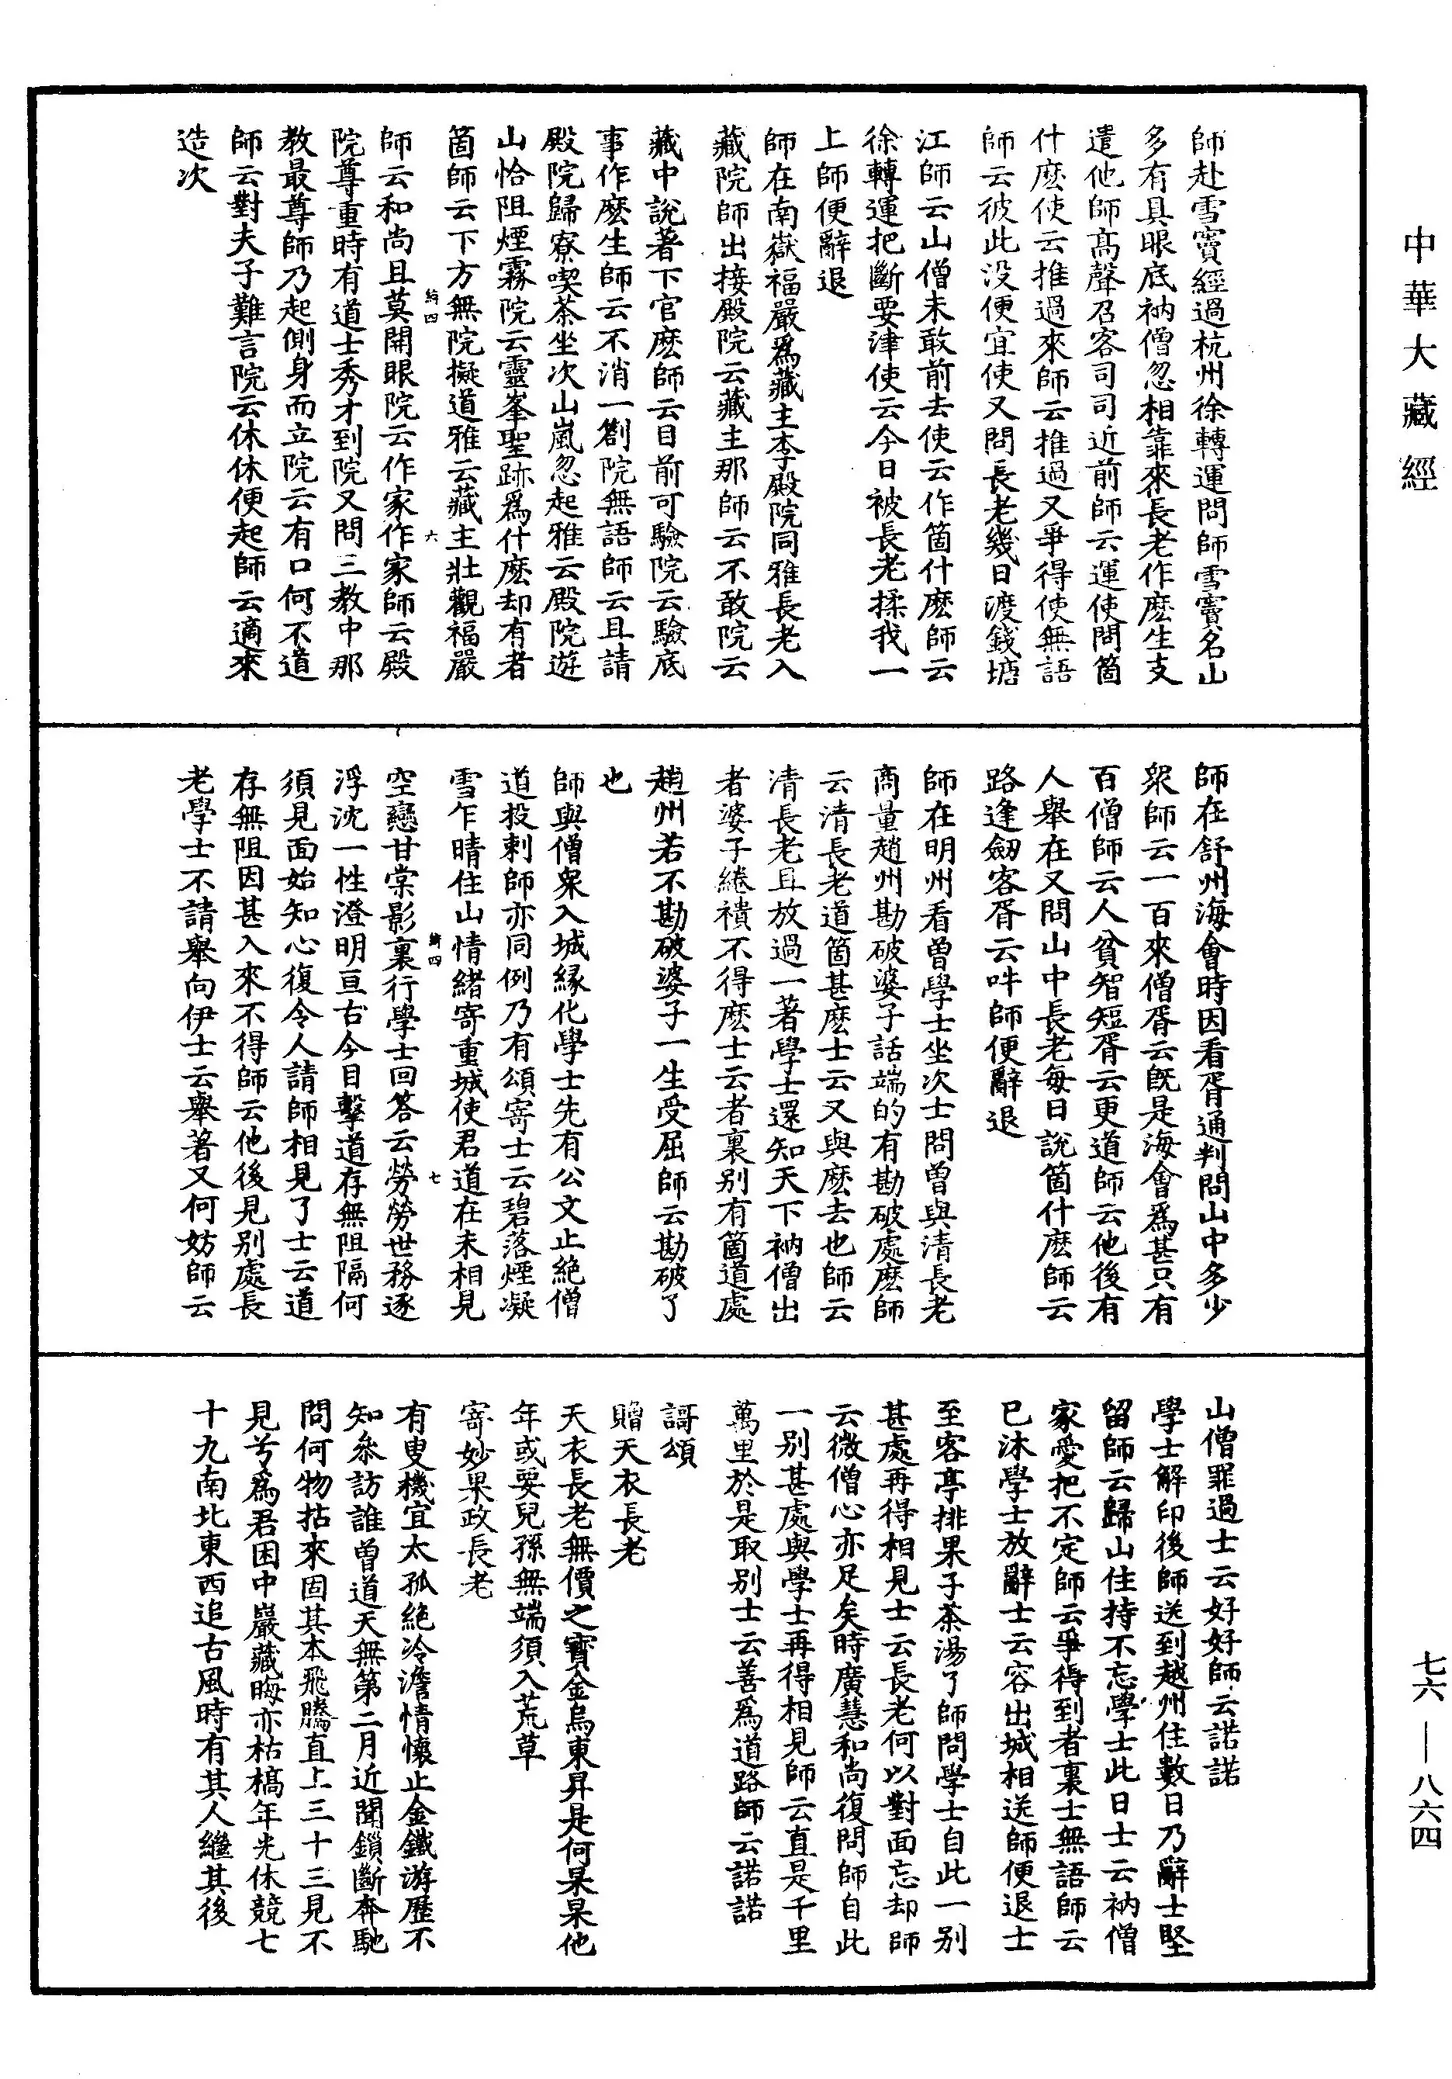 中華大藏經
師赴雪竇經過杭州徐轉運問師雪竇名山
多有具眼底衲僧忽相靠來長老作麽生支
遣他師高聲召客司司近前師云運使問箇
什麽使云推過來師云推過又爭得使無語
師云彼此没便宜使又問長老幾日渡錢塘
江師云山僧未敢前去使云作箇什麽師云
徐轉運把斷要津使云今日被長老揉我一
上師便辭退
師在南嶽福嚴爲藏主李殿院同雅長老入
藏院師出接殿院云藏主那師云不敢院云
藏中說著下官麽師云目前可驗院云驗底
事作麽生師云不消一劄院無語師云且請
殿院歸寮喫茶坐次山嵐忽起雅云殿院遊
山恰阻煙霧院云靈峯聖跡爲什麽却有者
箇師云下方無院擬道雅云藏主壯觀福嚴
師云和尚且莫開眼院云作家作家師云殿
院尊重時有道士秀才到院又問三教中那
教最尊師乃起側身而立院云有口何不道
師云對夫子難言院云休休便起師云適來
造次
師在舒州海會時因看胥通判問山中多少
衆師云一百來僧胥云既是海會爲甚只有
百僧師云人貧智短胥云更道師云他後有
人舉在又問山中長老每日說箇什麽師云
路逢劒客胥云吽師便辭退
師在明州看曾學士坐次士問曾與清長老
商量趙州勘破婆子話端的有勘破處麽師
云清長老道箇甚麽士云又與麽去也師云
清長老且放過一著學士還知天下衲僧出
者婆子綣襀不得麽士云者裏别有箇道處
趙州若不勘破婆子一生受屈師云勘破了
也
師與僧衆入城緣化學士先有公文止絶僧
道投刺師亦同例乃有頌寄士云碧落煙凝
雪乍晴住山情緒寄重城使君道在未相見
空戀甘棠影裏行學士回答云勞勞世務逐
浮沈一性澄明亘古今目擊道存無阻隔何
須見面始知心復令人請師相見了士云道
存無阻因甚入來不得師云他後見别處長
老學士不請舉向伊士云舉著又何妨師云
山僧罪過士云好好師云諾諾
學士解印後師送到越州住數日乃辭士堅
留師云歸山住持不忘學士此日士云衲僧
家愛把不定師云爭得到者裏士無語師云
已沐學士放辭士云容出城相送師便退士
至客亭排果子茶湯了師問學士自此一别
甚處再得相見士云長老何以對面忘却師
云微僧心亦足矣時廣慧和尚復問師自此
一别甚處與學士再得相見師云直是千里
萬里於是取别士云善爲道路師云諾諾
謌頌
贈天衣長老
天衣長老無價之寶金烏東昇是何杲杲他
年或要兒孫無端須入荒草
寄妙果政長老
有叟機宜太孤絶冷澹情懷止金鐵游歷不
知叅訪誰曾道天無第二月近聞鎖斷奔馳
問何物拈來固其本飛騰直上三十三見不
見兮爲君困中巖藏晦亦枯槁年光休競七
十九南北東西追古風時有其人繼其後
七六—八六四